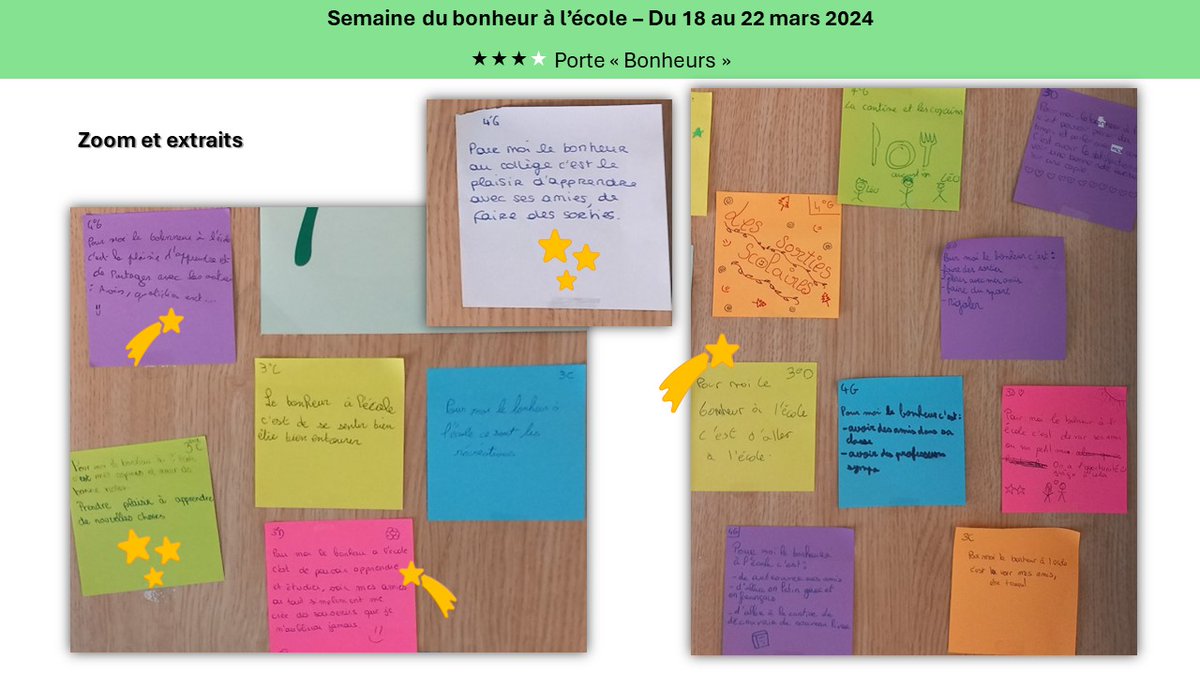 Semaine du bonheur à l'école – Du 18 au 22 mars 2024
★★★★ Porte « Bonheurs »
Zoom et extraits
4°G
Pour moi le bonheur
au collège c'est le
plaisir d'apprendre
avec ses amies, de
faire des sorties.
4°G
Pour moi le bohnneur à l'école
c'est le plaisir d'apprendre et
de Partager avec les autres
3°C
Le bonheur à l'école
c'est de se sentir bien
être bien entourer
3C
Pour moi le bonheur à
l'école ce sont les
recreations
3°C
bonne notes.
Prendre plaisir à apprendre
de nouvelles choses
3°D
Pour moi le bonheur a l'école
c'est de pouvoir apprendre
et étudier, voir mes amies
ou tout simplement me
crée des souvenirs que je
n'oublierai jamais.
4°G
La cantine et les copains
Léo
LÉO
3D
4°G
des sorties
scolaires
Pour moi le bonheur c'est :
faire des sorties
- faire du sport
- rigoler
3°D
Pour moi le
bonheur à l'école
c'est d'aller
a l'école.
4G
Pour moi le bonheur c'est :
- avoir des amis dans sa
classe
- avoir des professeurs
sympa
3D
Pour moi le bonheur à l'
école c'est de voir ses amis
4G
Pour moi le bonheure
à l'école c'est :
- d'aller en latin grec et
en français
- d'aller à la cantine de
découvrir de nouveau livres
3C
Pour moi le bonheur à l'école
c'est le voir mes amis,